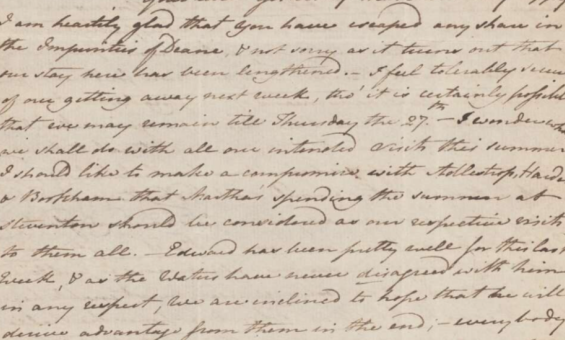 I am heartily glad that you have escaped any share in
the Impurities of Deane, & not sorry as it turns out that
our stay here has been lengthened. – I feel tolerably secure
of our getting away next week, tho' it is certainly possible
that we may remain till Thursday the 27.th – I wonder what
we shall do with all our intended visits this summer
I should like to make a compromise with Adlestrop, Harden
& Bookham that Martha's spending the summer at
Steventon should be considered as our respective visits
to them all. – Edward has been pretty well for this last
Week, & as the Waters have never disagreed with him
in any respect, we are inclined to hope that he will
derive advantage from them in the end; – everybody